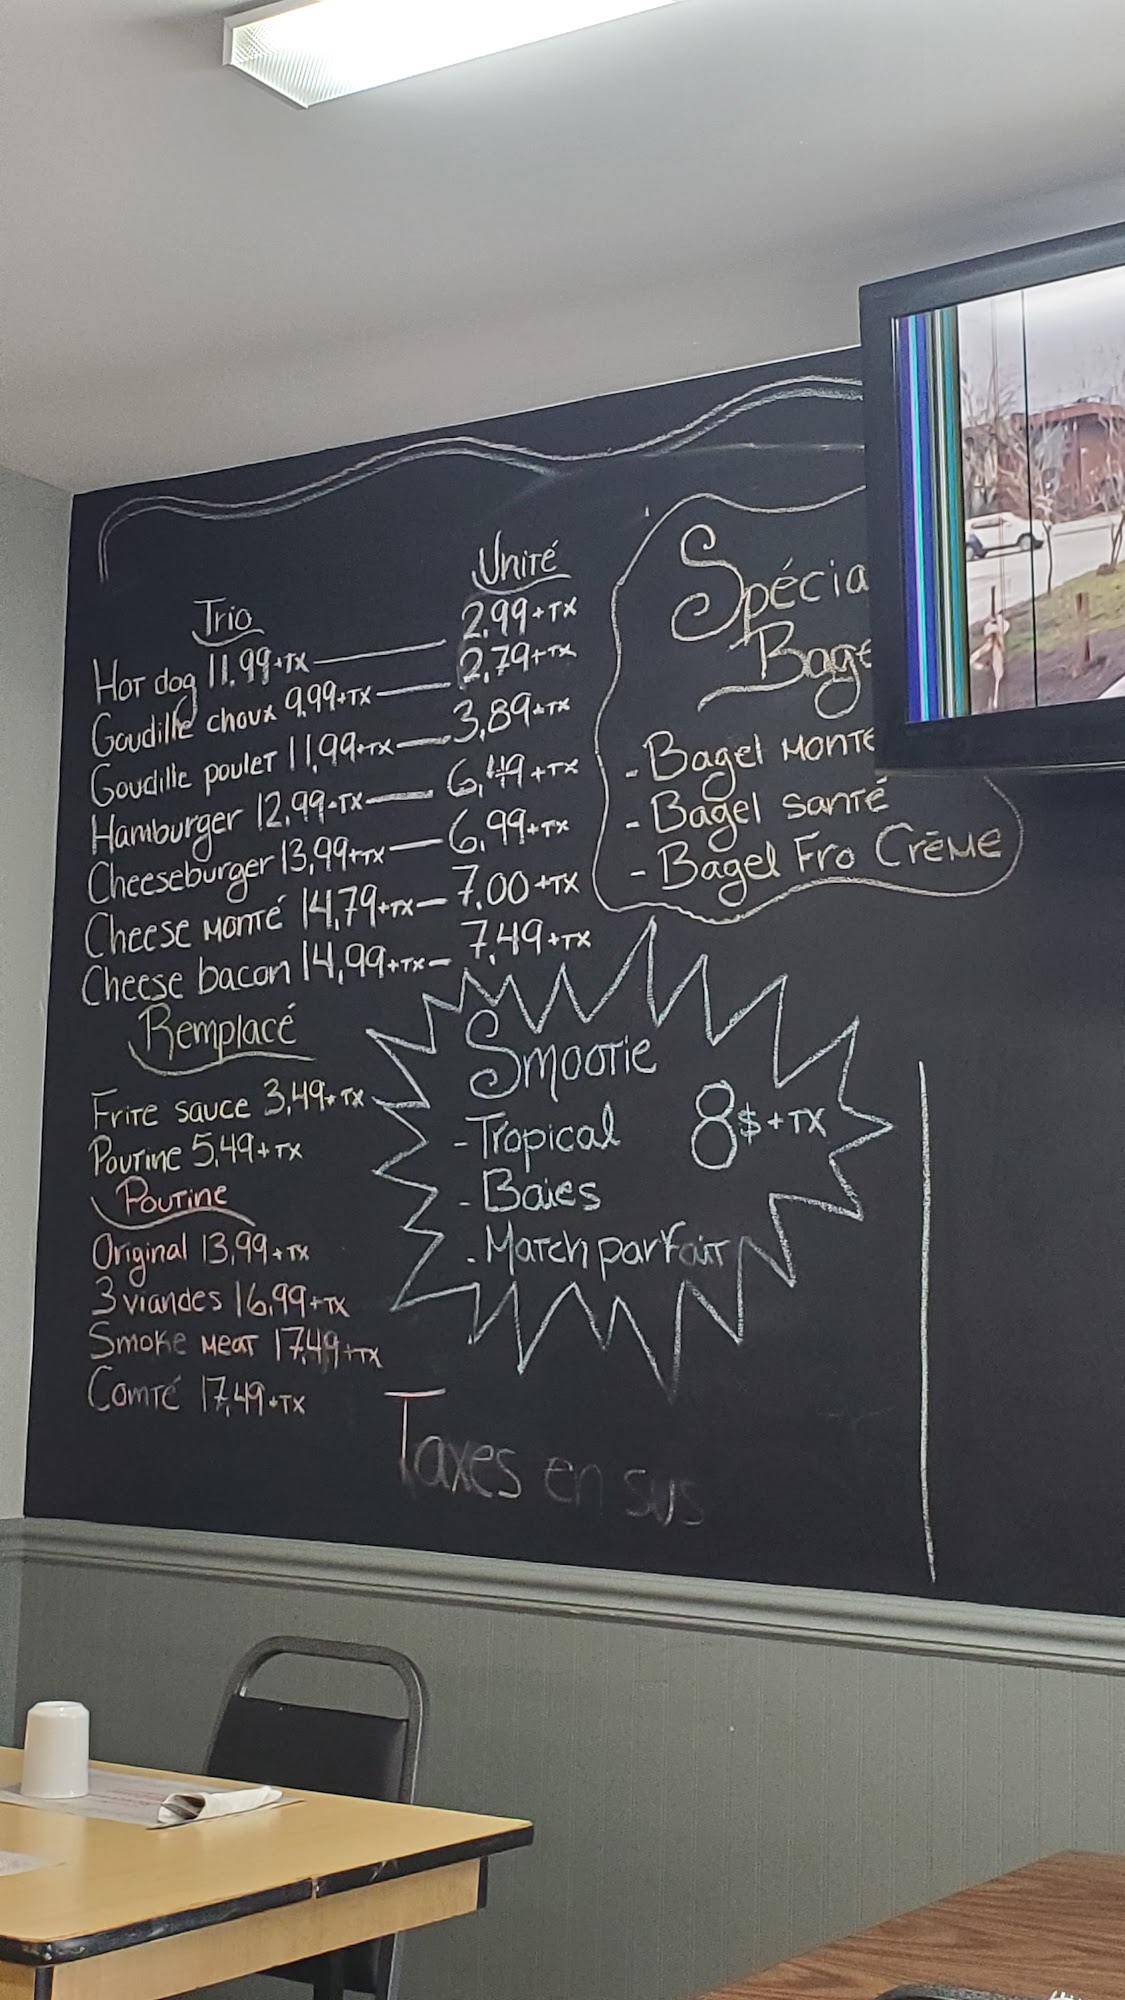 Trio
Unité
Hot dog 11,99+TX — 2,99+TX
Goudille choux 9,99+TX — 2,79+TX
Goudille poulet 11,99+TX — 3,89+TX
Hamburger 12,99+TX — 6,49+TX
Cheeseburger 13,99+TX — 6,99+TX
Cheese monté 14,79+TX — 7,00+TX
Cheese bacon 14,99+TX — 7,49+TX
Remplacé
Frite sauce 3,49+TX
Poutine 5,49+TX
Poutine
Original 13,99+TX
3 viandes 16,99+TX
Smoke meat 17,49+TX
Comté 17,49+TX
Spécia
Bage
- Bagel monté
- Bagel santé
- Bagel Fro Crème
Smootie
- Tropical 8$+TX
- Baies
- Match parfait
Taxes en sus